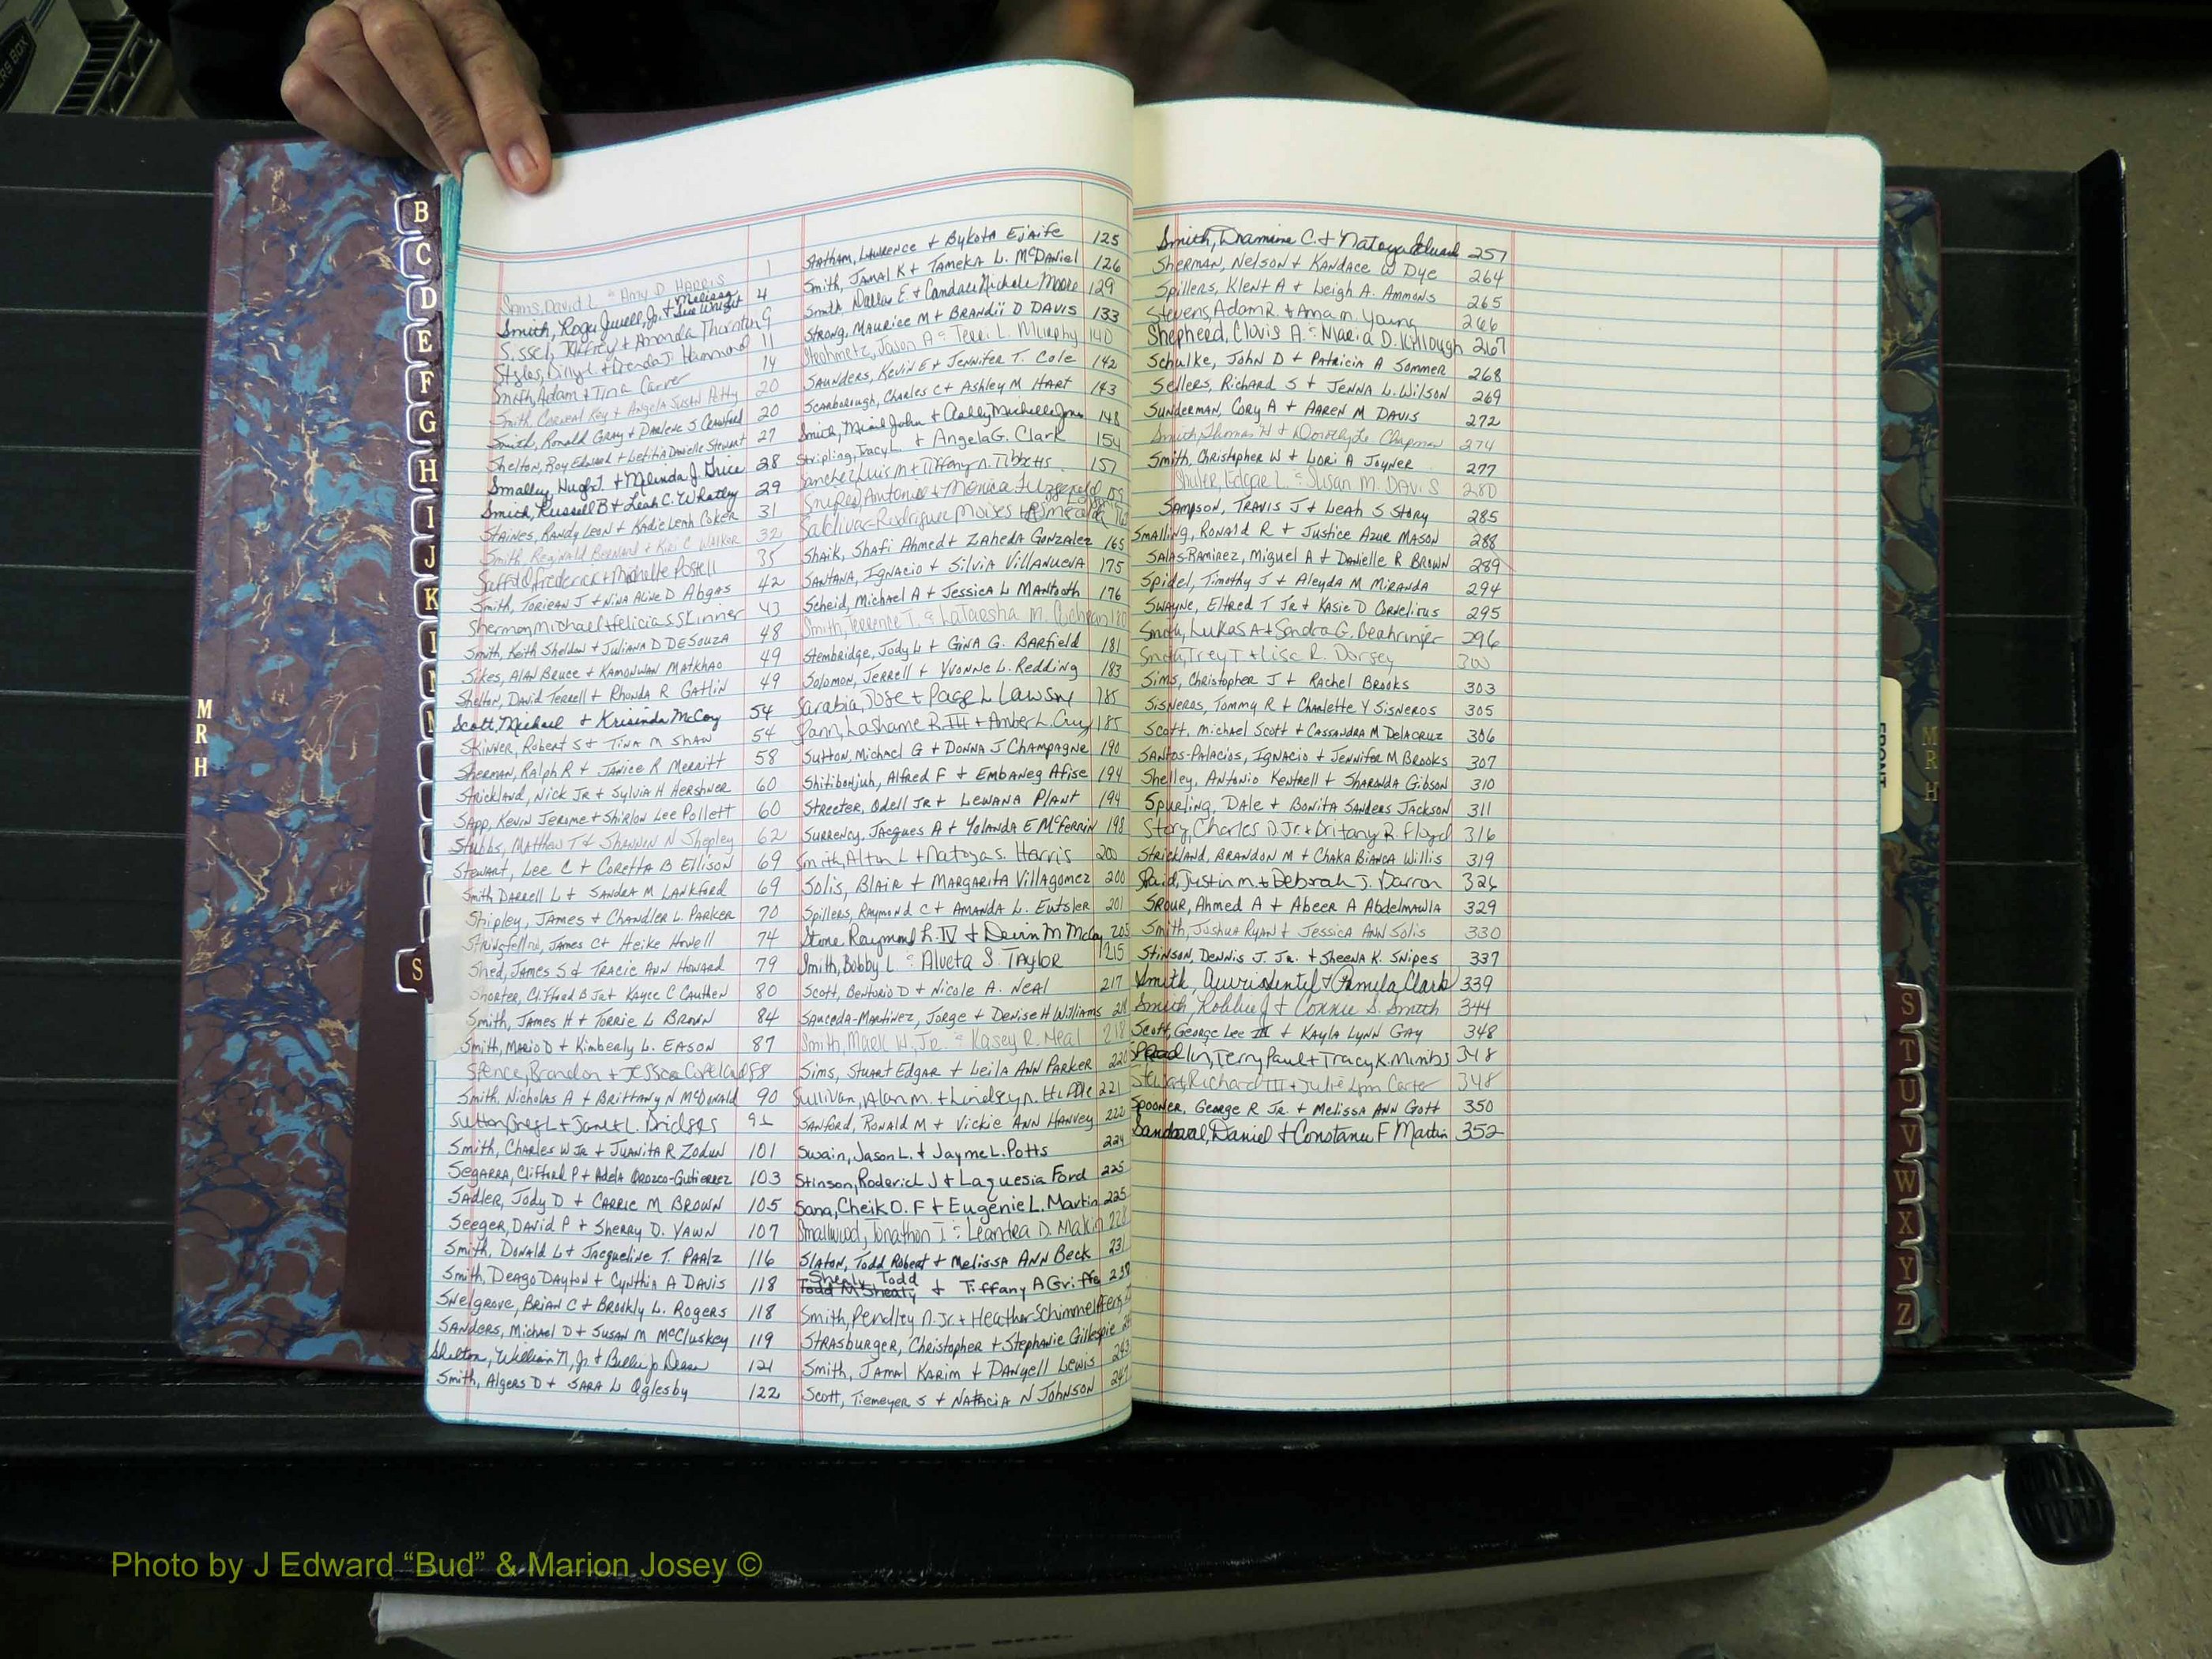 B
C
D
E
F
G
H
I
J
K
M
R
H
S
Sams, David L & Amy D. HARRIS 1
Melissa
Smith, Roger Jewell, Jr. + Sue Wright 4
Sissel, Jeffrey + Amanda Thornton 9
Styles, Diny L + Brenda J. Hammond 11
Smith, Adam + Tina Carver 14
Smith, Key + Angela Susan Petty 20
Smith, Ronald Gray + Darlene S Crawford 20
Shelton, Roy Edward + Letitia Danielle Stewart 27
Smalley, Hugh J + Melinda J. Grice 28
Smith, Russell B + Leah C. Whatley 29
STAINES, RANDY LEON + KADIE LEAH COKER 31
Smith, Reginald Bernard + Kiri C WALKER 32
Saffold, Frederick + Michelle Postell 35
Smith, TORIEAN J + NINA ALINE D Abgas 42
Sherman, Michael + Felicia S Skinner 43
Smith, Keith Sheldon + JULIANA D DESOUZA 48
Sikes, ALAN BRUCE + KAMONWAN MATKHAO 49
Shelton, DAVID TERRELL + RHONDA R GATLIN 49
Scott, Michael + Krisinda McCoy 54
SKINNER, Robert S + TINA M SHAW 54
SHERMAN, Ralph R + JANICE R MERRITT 58
Strickland, Nick JR + Sylvia H HERSHNER 60
SAPP, KEVIN JEROME + Shirlon Lee Pollett 60
Stubbs, MATTHEW T + SHANNON N Shepley 62
STEWART, LEE C + CORETTA B ELLISON 69
Smith DARRELL L + SANDRA M LANKFORD 69
Shipley, JAMES + CHANDLER L. PARKER 70
Stringfellow, JAMES C + Heike Howell 74
Shed, JAMES S + TRACIE ANN HOWARD 79
Shorter, Clifford B JR + KAYCE C CAUTHEN 80
Smith, JAMES H + TORRIE L BROWN 84
Smith, MARIO D + Kimberly L. EASON 87
Spence, Brandon + Jessica Copeland 88
Smith, Nicholas A + BRITTANY N McDonald 90
Sutton, Greg L + Janet L. Bridges
Smith, CHARLES W JR + JUANITA R ZODUN 101
SEGARRA, Clifford P + Adela OROZCO-Gutierrez 103
SADLER, Jody D + CARRIE M BROWN 105
SEEGER, DAVID P + SHERRY D. YAWN 107
Smith, DONALD L + JACQUELINE T. PAALZ 116
Smith, DEAGO DAYTON + CYNTHIA A DAVIS 118
SNELGROVE, BRIAN C + BROOKLY L. ROGERS 118
SANDERS, Michael D + SUSAN M McCluskey 119
Shelton, William N, Jr + Billie Jo Dean 121
Smith, Algers D + SARA L Oglesby 122
STATHAM, LAWRENCE + BYKOTA EJAIFE 125
Smith, JAMAL K + TAMEKA L. McDANIEL 126
Smith Dallas E + Candace Nichole Moore 129
STRONG, MAURICE M + BRANDII D DAVIS 133
Steahmetz, Jason A & Terri L. Murphy 140
SAUNDERS, KEVIN E + JENNIFER T. Cole 142
SCARBOROUGH, CHARLES C + ASHLEY M HART 143
Smith, John + Ashley Michelle Jones 148
Stripling, Tracy L + Angela G. Clark 154
Sanchez, Luis M + Tiffany N. Tibbetts 157
Snipes, Antonio + Monica Fitzgerald
Saldivar-Rodrigue Moises + Esmeralda
SHAIK, SHAFI AHMED + ZAHEDA GONZALEZ 165
SANTANA, IGNACIO + SILVIA VILLANUEVA 175
Scheid, Michael A + JESSICA L MANTOOTH 176
Smith, Terrence T. & LaTaesha M. Cochran 180
Stembridge, Jody L + GINA G. BARFIELD 181
Solomon, JERRELL + YVONNE L. REDDING 183
Sarabia, Jose + Page L Lawson 185
Spann, Lashame R. III + Amber L. Cruz 185
Sutton, Michael G + DONNA J CHAMPAGNE 190
Shitibonjuh, Alfred F + EMBANEG AFISE 194
STREETER, Odell JR + LEWANA PLANT 194
SURRENCY, JACQUES A + YOLANDA E McFERRIN 198
Smith, Alton L + Natoya S. Harris 200
Solis, BLAIR + MARGARITA Villagomez 200
Spillers, RAYMOND C + AMANDA L. EUTSLER 201
Stone, Raymond R. IV + Devin M McCoy 205
Smith, Bobby L. & Alveta S. TAYLOR 215
Scott, BENTORIO D + NICOLE A. NEAL 217
SAUCEDA-MARTINEZ, JORGE + DENISE H WILLIAMS 218
Smith, Mark W. Jr. & Kasey R. Neal 218
Sims, STUART EDGAR + LEILA ANN PARKER 220
Sullivan, Alan M. + Lindsey N. Hittle 221
SANFORD, RONALD M + VICKIE ANN HARVEY 222
Swain, Jason L. + Jayme L. Potts 224
Stinson, Roderick J + Laquesia Ford 225
Sana, Cheik O. F + Eugénie L. Martin 225
Smallwood, Jonathon J. & Leandra D. Makin 228
SLATON, TODD ROBERT + MELISSA ANN BECK 231
Shealy, Todd
Todd M Shealy + Tiffany A Griffe
Smith, Pendley D. Jr. + Heather Schimmelfen
STRASBURGER, Christopher + Stephanie Gillespie
Smith, JAMAL KARIM + DANYELL LEWIS 243
Scott, TIEMEYER S + NATACIA N JOHNSON 247
Smith, Dramine C. + Natoya Eduard 257
SHERMAN, NELSON + KANDACE W DYE 264
Spillers, KLENT A + LEIGH A. AMMONS 265
Stevens, Adam R. + Ama M. Young 266
Shepherd, Clovis A. & Maria D. Killough 267
Schulke, JOHN D + PATRICIA A SOMMER 268
Sellers, RICHARD S + JENNA L. WILSON 269
SUNDERMAN, CORY A + AAREN M DAVIS 272
Smith, Thomas W + Dorothy L. Chapman 274
Smith, CHRISTOPHER W + LORI A JOYNER 277
Shulte, Edgie L. & Susan M. DAVIS 280
SAMPSON, TRAVIS J + LEAH S STORY 285
SMALLING, RONALD R + JUSTICE AZUR MASON 288
SALAS-RAMIREZ, MIGUEL A + DANIELLE R BROWN 289
Spidel, TIMOTHY J + ALEYDA M MIRANDA 294
SWAYNE, ELFRED T JR + KASIE D CORNELIOUS 295
Smith, Lukas A + Sandra G. Deahringer 296
Smith, Trey T + Lisa R. Dorsey 300
Sims, CHRISTOPHER J + RACHEL BROOKS 303
SISNEROS, TOMMY R + CHARLETTE Y SISNEROS 305
Scott, Michael Scott + CASSANDRA M DELACRUZ 306
SANTOS-PALACIOS, IGNACIO + JENNIFER M BROOKS 307
Shelley, ANTONIO KENTRELL + SHARONDA GIBSON 310
Spurling, DALE + BONITA SANDERS JACKSON 311
Story, Charles D. Jr. + Britany R. Floyd 316
STRICKLAND, BRANDON M + CHAKA BIANCA WILLIS 319
Spaid, Justin M. + Deborah J. Barron 326
SROUR, AHMED A + ABEER A ABDELMAWLA 329
Smith, JOSHUA RYAN + JESSICA ANN SOLIS 330
STINSON, DENNIS J. JR. + SHEENA K. SNIPES 337
Smith, + Pamela Clark 339
Smith, Robbie J + Connie S. Smith 344
Scott, GEORGE LEE III + KAYLA LYNN GAY 348
Spradlin, Terry Paul + Tracy K. Mimbs 348
Stewart, Richard III + Julie Lynn Carter 348
SPOONER, GEORGE R JR. + MELISSA ANN GOTT 350
Sandoval, Daniel + Constance F Martin 352
FRONT
M
R
H
S
T
U
V
W
X
Y
Z
Photo by J Edward “Bud” & Marion Josey ©